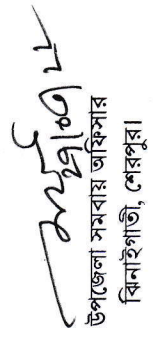 উপজেলা সমবায় অফিসার
ঝিনাইগাতী, শেরপুর।